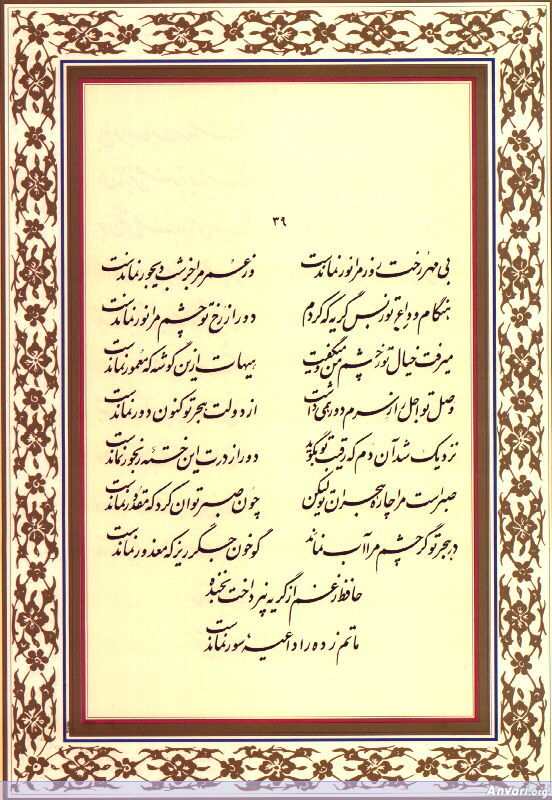 ۳۹
بی مهر رخت روز مرا نور نماندست وز عمر مرا جز شب دیجور نماندست
هنگام وداع تو ز بس گریه که کردم دور از رخ تو چشم مرا نور نماندست
میرفت خیال تو ز چشم من و میگفت هیهات ازین گوشه که معمور نماندست
وصل تو اجل را ز سرم دور همی داشت از دولت هجر تو کنون دور نماندست
نزدیک شد آن دم که رقیب تو بگوید دور از درت این خسته رنجور نماندست
صبرست مرا چاره هجران تو لیکن چون صبر توان کرد که مقدور نماندست
در هجر تو گر چشم مرا آب نماند گو خون جگر ریز که معذور نماندست
حافظ ز غم از گریه نپرداخت بخنده
ماتم زده را داعیه سور نماندست
Anvari.org